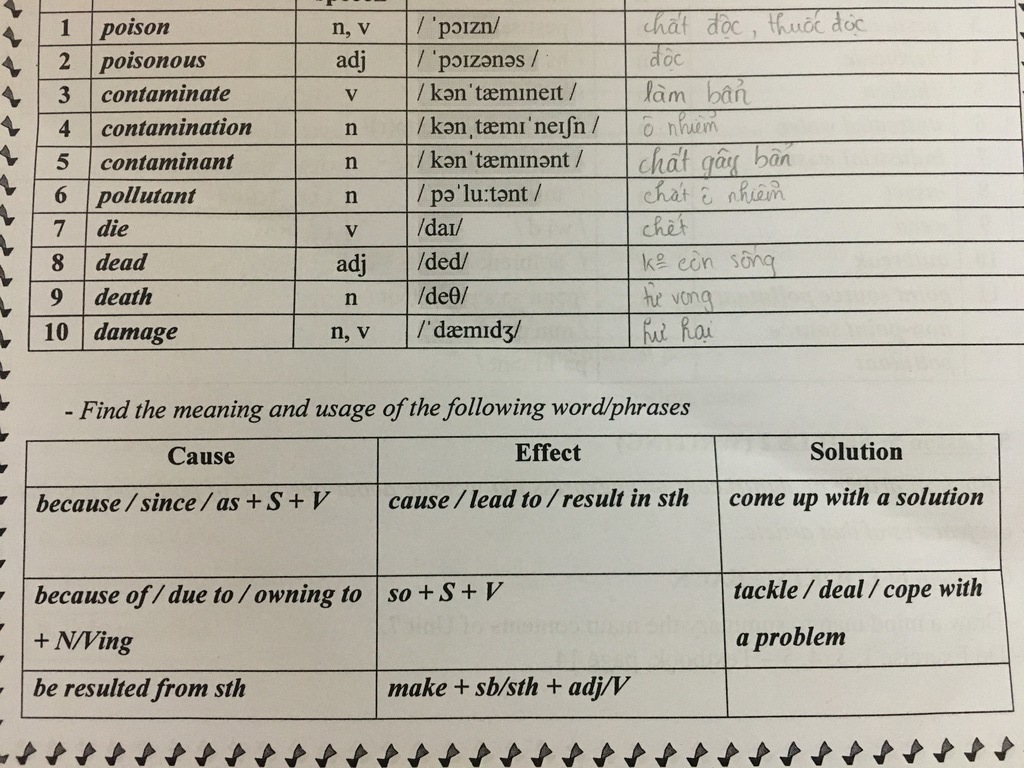 1 poison n, v / ˈpɔɪzn/ chất độc, thuốc độc
2 poisonous adj / ˈpɔɪzənəs / độc
3 contaminate v / kənˈtæmɪneɪt / làm bẩn
4 contamination n / kənˌtæmɪˈneɪʃn / ô nhiễm
5 contaminant n / kənˈtæmɪnənt / chất gây bẩn
6 pollutant n / pəˈluːtənt / chất ô nhiễm
7 die v /daɪ/ chết
8 dead adj /ded/ kº còn sống
9 death n /deθ/ tử vong
10 damage n, v /ˈdæmɪdʒ/ hư hại
- Find the meaning and usage of the following word/phrases
Cause Effect Solution
because / since / as + S + V cause / lead to / result in sth come up with a solution
because of / due to / owning to so + S + V tackle / deal / cope with
+ N/Ving a problem
be resulted from sth make + sb/sth + adj/V